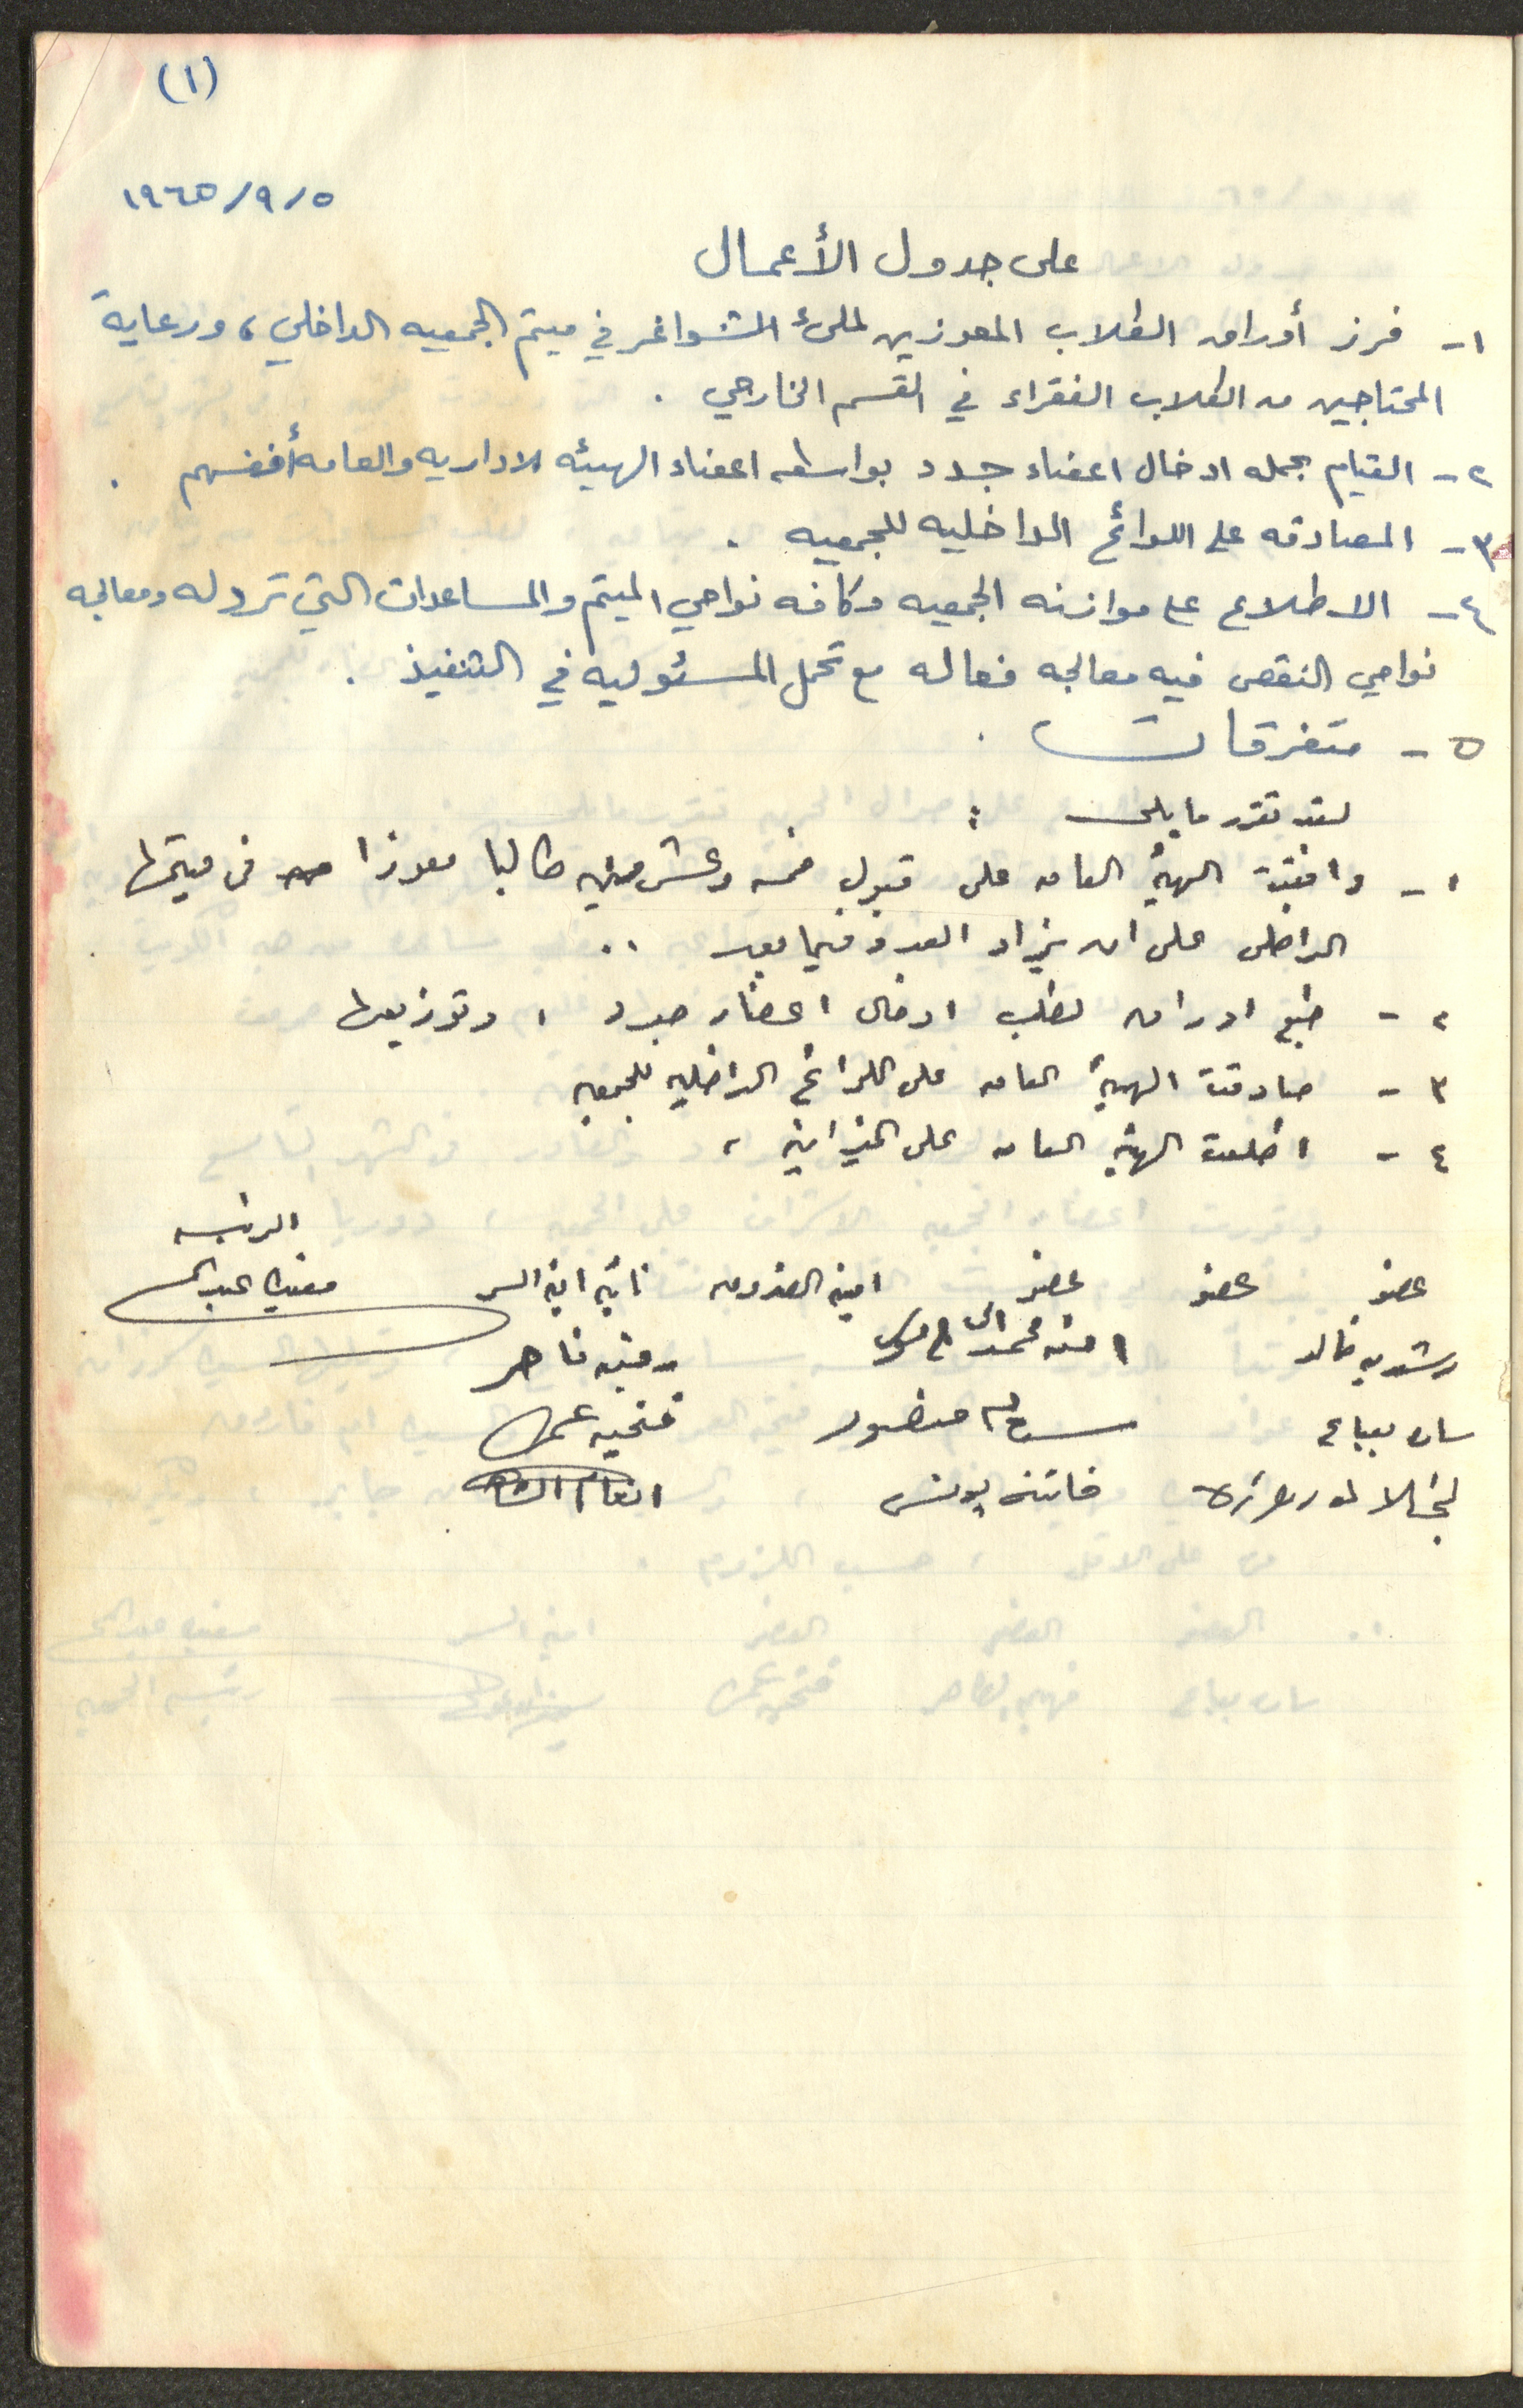 (١)
١٩٦٥/٩/٥
على جدول الأعمال
١- فرز أوراق الطلاب المعوزين لملئ الشواغر في ميتم الجمعيه الداخلي، ورعاية
المحتاجين من الطلاب الفقراء في القسم الخارجي .
٢- القيام بحمله ادخال اعضاء جدد بواسطه اعضاء الهيئه الاداريه والعامه أنفسهم .
٣- المصادقه على اللوائح الداخليه للجمعيه .
٤- الاطلاع على موازنه الجمعيه وكافه نواحي الميتم والمساعدات التي ترد له ومعالجه
نواحي النقص فيه معالجه فعاله مع تحمل المسئوليه في التنفيذ .
٥- متفرقات .
لقد تقرر ما يلي :
١- وافقت الهيئة العامه على قبول خمسه وعشرين طالبا معوزا في ميتمها
الداخلي على ان يزاد العدد فيما بعد ..
٢- طبع اوراق لطلب ادخال اعضاء جدد ، وتوزيعها
٣- صادقت الهيئة العامه على اللوائح الداخليه للجمعيه
٤- اطلعت الهيئة العامه على الميزانيه ،
عضو عضو عضو امينه الصندوق نائبه امينه السر الرئيسه
رشديه خالد امنه محمد رقيه ناصر
ساره بباع منصور فتحيه
فاتنه يونس انعام